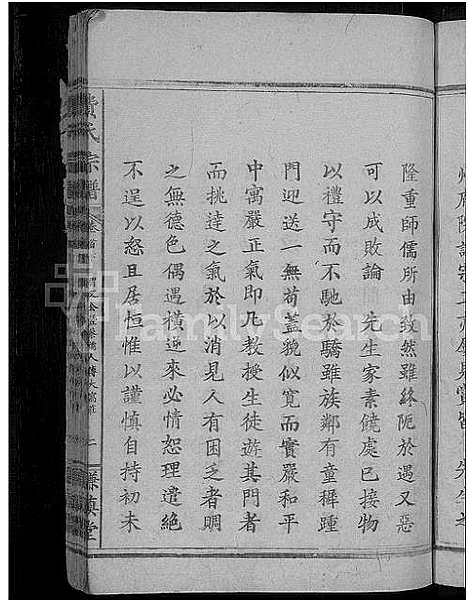 隆重師儒所由致然雖終阨於遇又惡
可以成敗論　先生家素饒處已接物
以禮守而不馳於驕雖族鄰有童穉踵
門迎送一無苟蓋貌似寬而實嚴和平
中寓嚴正氣即凡教授生徒遊其門者
而挑達之氣於以消見人有困乏者賙
之無德色偶遇橫逆來必情恕理遣絕
不逞以怒且居恒惟以謹慎自持初未
氏宗譜
卷首
堂
FamilySearch